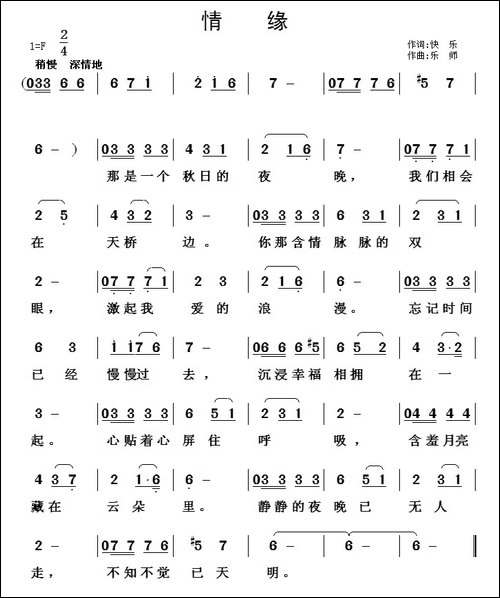 情 缘
1=F 2/4
作词:快 乐
作曲:乐 师
稍慢 深情地
(033 6 6 | 6 7 1 | 2 1 6 | 7 - | 07 7 7 6 | #5 7
6 - ) | 03 3 3 3 | 4 3 1 | 2 1 6 | 7 - | 07 7 7 1
那是一个 秋日的 夜 晚， 我们相会
2 5 | 4 3 2 | 3 - | 03 3 3 3 | 6 3 1 | 2 3 1
在 天桥 边。 你那含情 脉脉的 双
2 - | 07 7 7 1 | 2 3 | 2 1 6 | 6 - | 03 3 3 3
眼， 激起我 爱的 浪 漫。 忘记时间
6 3 | 1 1 7 6 | 7 - | 06 6 6 #5 | 6 5 2 | 4 3·2
已 经 慢慢过 去， 沉浸幸福 相拥 在 一
3 - | 03 3 3 3 | 6 5 1 | 2 3 1 | 2 - | 04 4 4 4
起。 心贴着心 屏住 呼 吸， 含羞月亮
4 3 7 | 2 1·6 | 6 - | 03 3 3 3 | 6 5 1 | 2 3 1
藏在 云朵 里。 静静的夜 晚已 无人
2 - | 07 7 7 6 | #5 7 | 6 - | 6 - | 6 - ||
走， 不知不觉 已天 明。